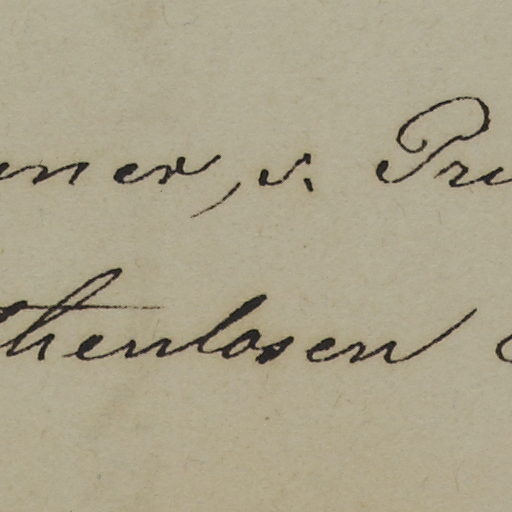 ener, v. Pri
thenlosen